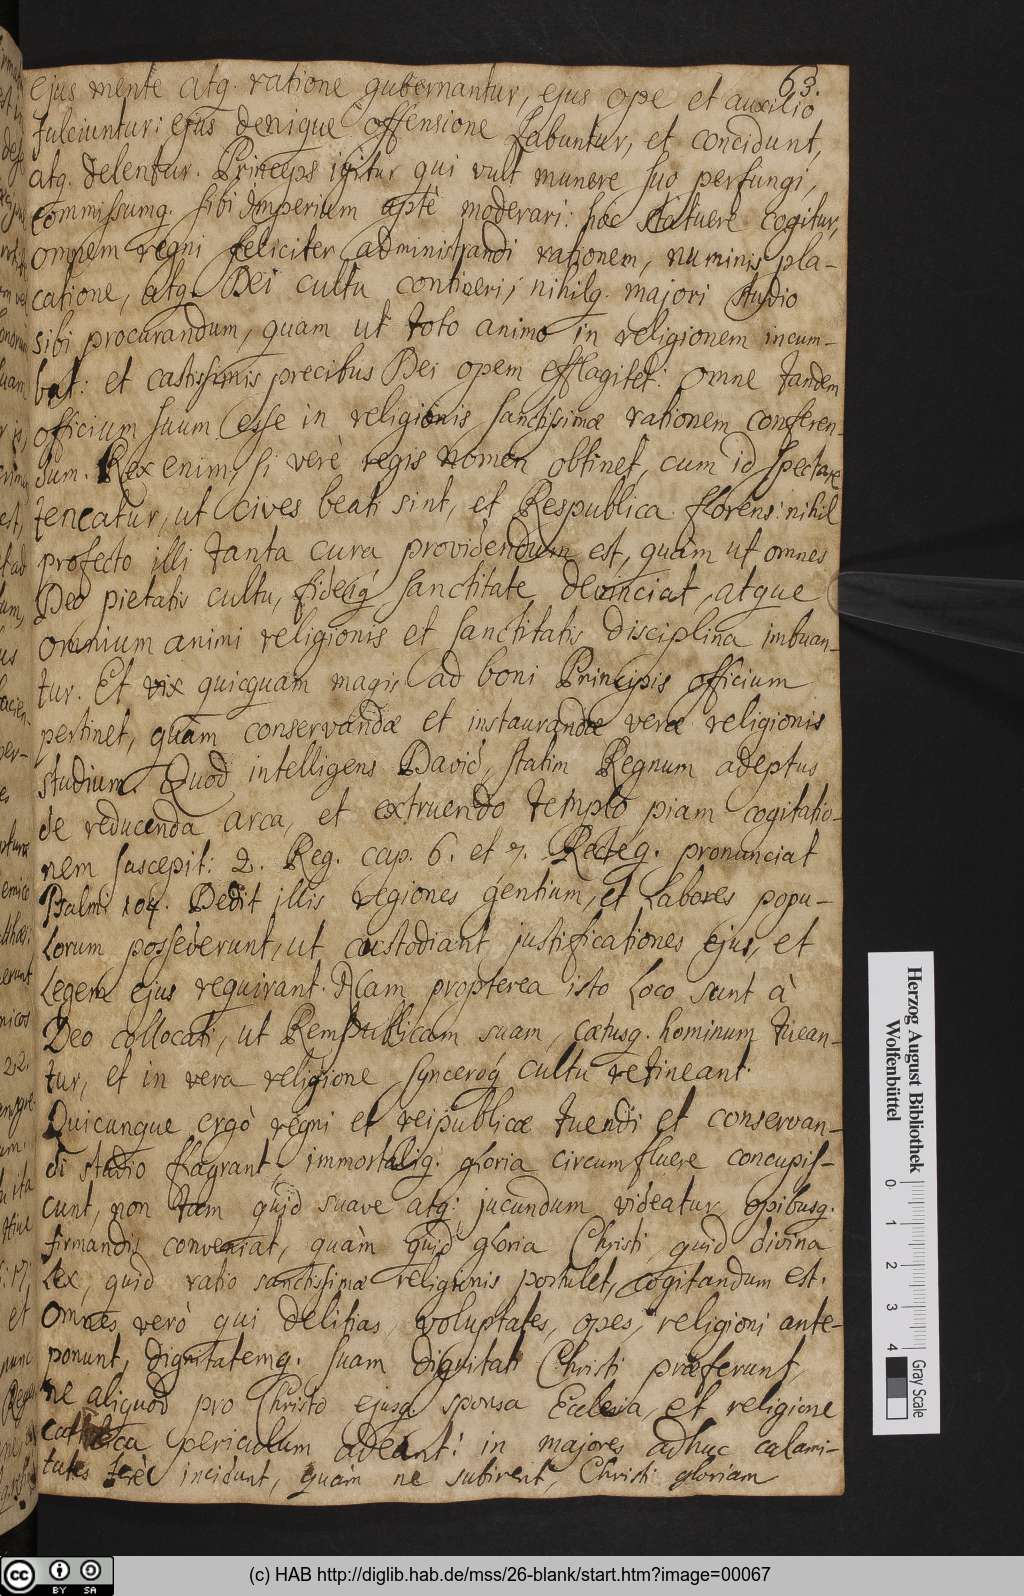 63.
ejus mente atq. ratione gubernantur, ejus ope et auxilio
fulciuntur: ejus denique offensione labuntur, et concidunt,
atq. delentur. Princeps igitur qui vult munere suo perfungi,
commissumq. sibi Imperium aptè moderari: hoc statuere cogitur,
omnem regni feliciter administrandi rationem, numinis pla-
catione, atq. Dei cultu contineri; nihilq. majori studio
sibi procurandum, quam ut toto animo in religionem incum-
bat: et castissimis precibus Dei opem efflagitet: omne tandem
officium suum esse in religionis sanctissimæ rationem conferen-
dum. Rex enim, si verè regis nomen obtinet, cum id spectare
teneatur, ut cives beati sint, et Respublica florens: nihil
profecto illi tanta cura providendum est, quàm ut omnes
Deo pietatis cultu, fideiq́ sanctitate devinciat, atque
omnium animi religionis et sanctitatis disciplina imbuan-
tur. Et vix quicquam magis ad boni Principis officium
pertinet, quàm conservandæ et instaurandæ veræ religionis
studium. Quod intelligens David, statim Regnum adeptus
de reducenda arca, et extruendo templo piam cogitatio-
nem suscepit: 2. Reg. cap. 6. et 7. Recteq. pronunciat
Psalm: 104. Dedit illis regiones gentium, et labores popu-
lorum possederunt, ut custodiant justificationes ejus, et
legem ejus requirant. Nam propterea isto loco sunt à
Deo collocati, ut Rempublicam suam, cætusq. hominum tuean-
tur, et in vera religione, synceroq́ cultu retineant.
Quicunque ergò regni et reipublicæ tuendi et conservan-
di studio flagrant, immortaliq. gloria circumfluere concupis-
cunt, non tam quid suave atq: jucundum videatur, opibusq.
firmandis conveniat, quàm quid gloria Christi, quid divina
lex, quid ratio sanctissimæ religionis postulet, cogitandum est.
Omnes verò qui delitias, voluptates, opes, religioni ante-
ponunt, dignitatemq. suam dignitati Christi præferunt,
ne aliquod pro Christo ejusq sponsa Ecclesia, et religione
catholica periculum adeant: in majores adhuc calami-
tates ferè incidunt, quàm ne subirent, Christi gloriam
Herzog August Bibliothek
Wolfenbüttel
0 1 2 3 4
Gray Scale
(c) HAB http://diglib.hab.de/mss/26-blank/start.htm?image=00067